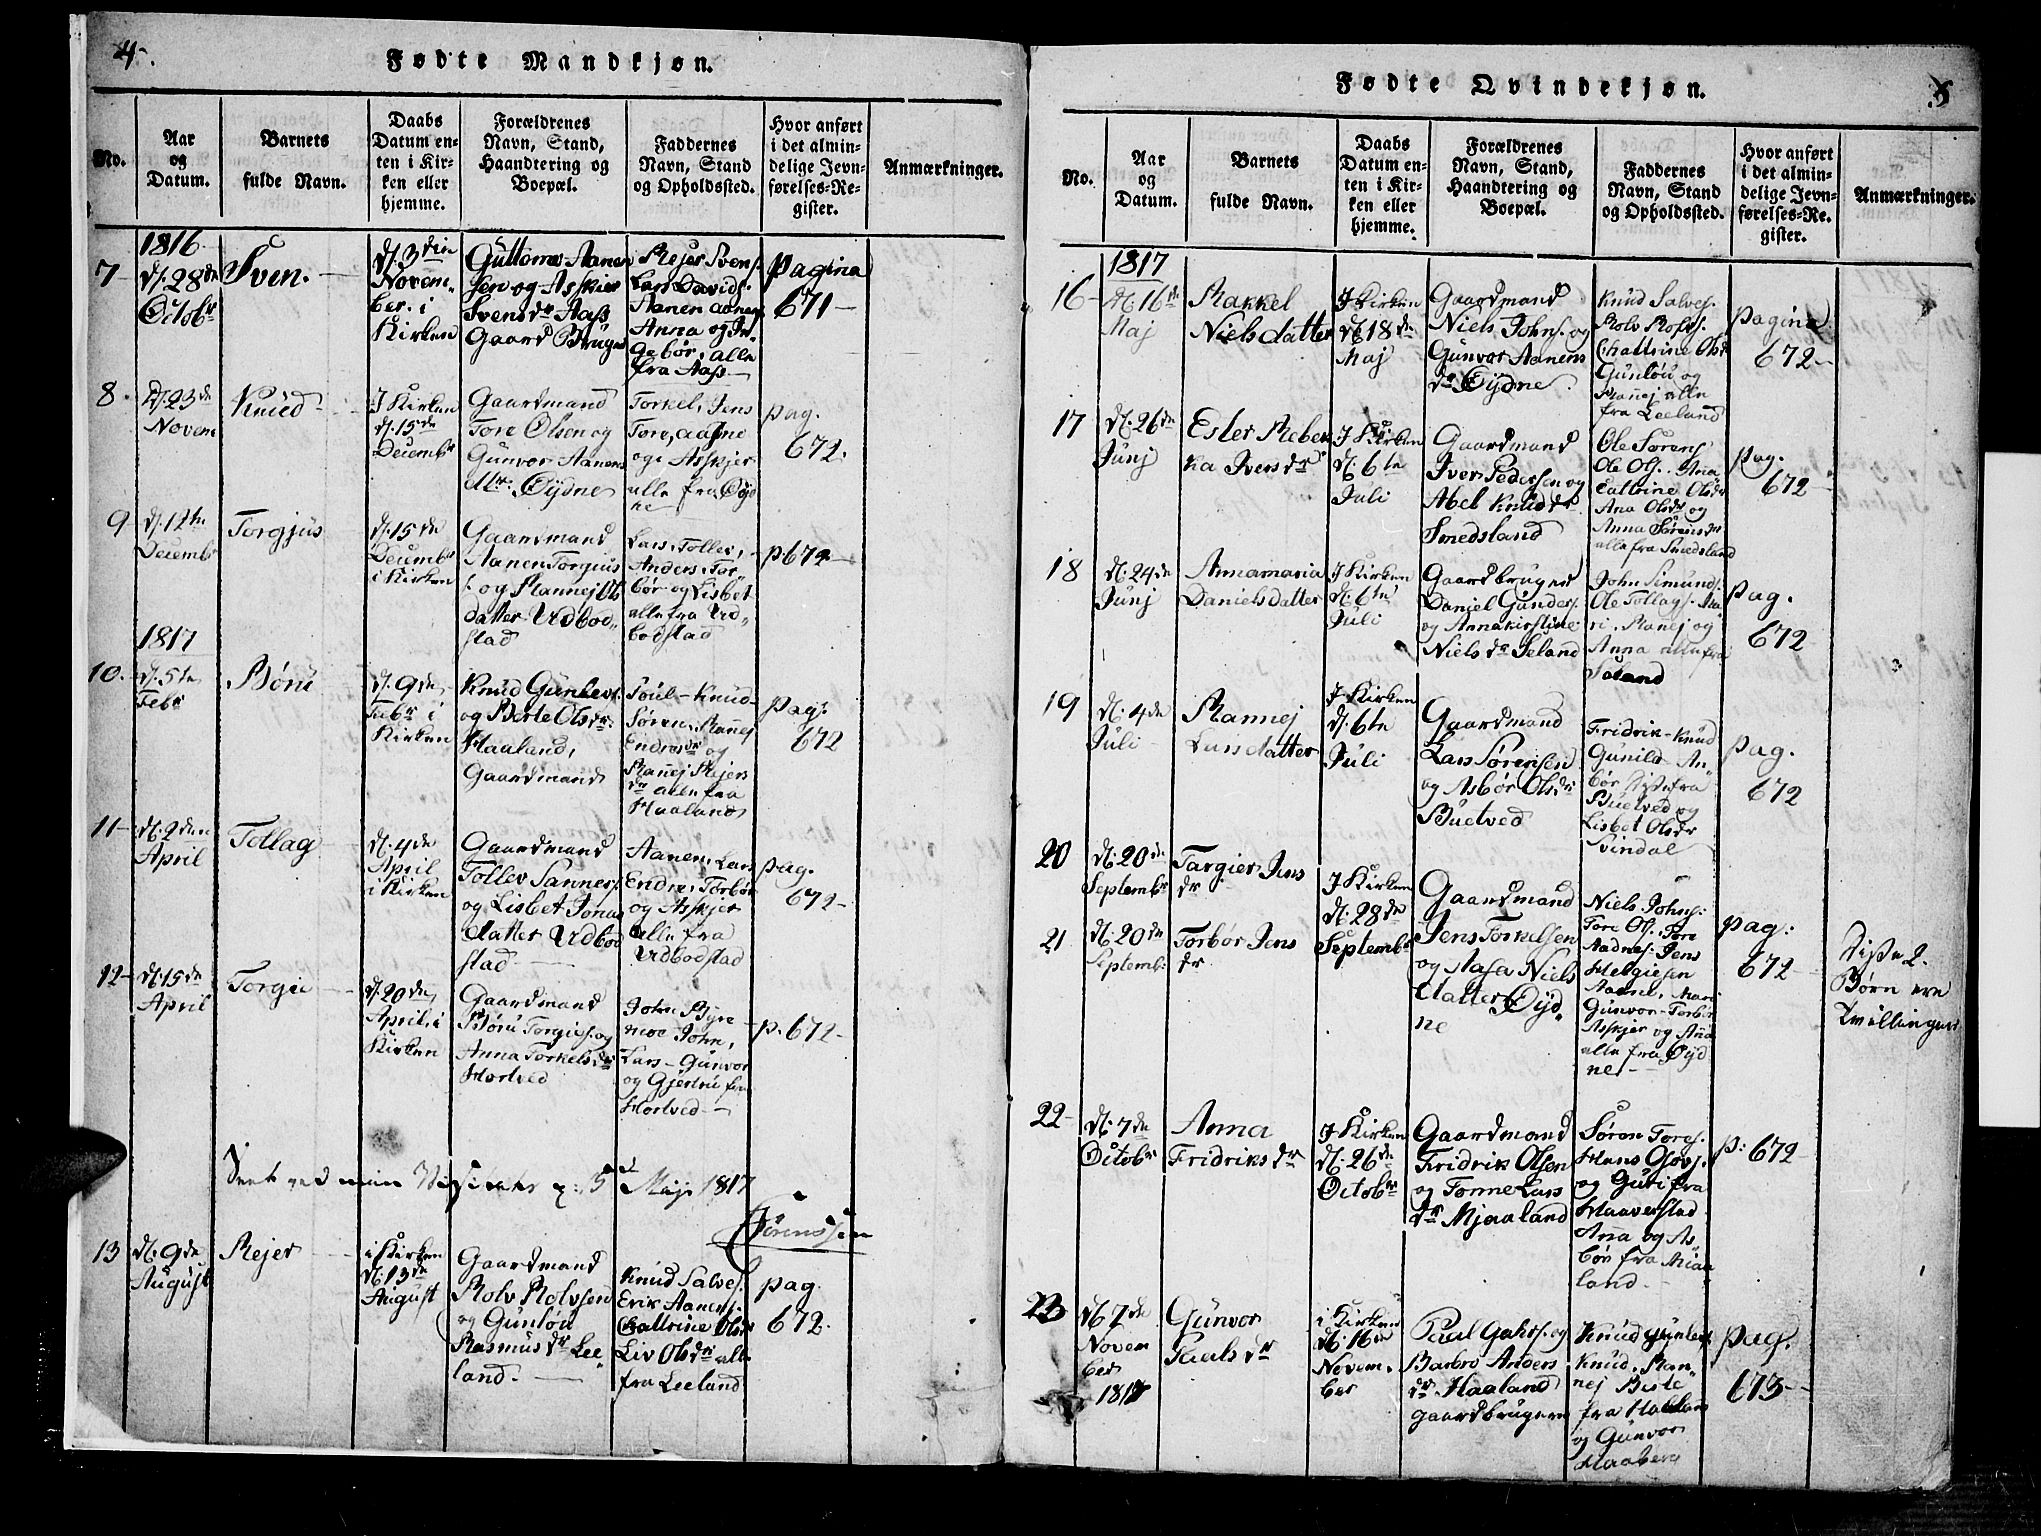 4.
Fødte Mandkjøn.
No.
Aar
og
Datum.
Barnets
fulde Navn.
Daabs
Datum en-
ten i Kir-
ken eller
hjemme.
Forældrenes
Navn, Stand,
Haandtering og
Boepæl.
Faddernes
Navn, Stand
og Opholdssted.
Hvor anført
i det almin-
delige Jevn-
førelses-Re-
gister.
Anmærkninger.
1816
7
d. 28de
Octobr
Sven.
d. 3die
Novem-
ber. i
Kirken
Guttorm Aanen
sen og Asskier
Svensdr Aass
Gaard Bruger
Rejer Svens.
Lars Davids.
Aanen Aanens.
Anna og In-
gebør, alle
fra Aass
pagina
671
8.
D. 23de
Novem
Knud
I Kirken
d. 15de
Decembr
Gaardmand
Tore Olsen og
Gunvor Aanens
dtr. Øydne
Torkel, Jens
Tore, Aasne
og Asskjer
alle fra Øyd
ne
pag.
672.
9
d. 12te
Decembr
Torgjus
d. 15de
Decembr
i Kirken
Gaardmand
Aanen Torgius
s. og Rannej Ols
datter Udbod-
stad
Lars, Tollev,
Anders, Tor
bør og Lisbet
alle fra Ud-
bodstad
p 672
1817
10.
d. 5te
Febr
Børu
d. 9de
Febr i
Kirken
Knud Gunlevs.
og Berte Olsdr.
Haaland,
Gaardmand
Poul - Knud
Søren, Rannej
Endresdr og
Rannej Rejers
dr alle fra
Haaland
pag.
672
11
d. 2den
April
Tollag
d. 4de
April
i Kirken
Gaardmand
Tollev Sanners.
og Lisbet Jonas
datter Udbod
stad
Aanen, Lars
Endre, Torbør
og Asskjer
alle fra
Udbodstad
pag.
672
12
d. 15de
April
Torgie
d. 20de
April, i
Kirken
Gaardmand
Børu Torgies. og
Anna Torkelsdr
Hortved
John Byre
moe John,
Lars - Gunvor
og Gjertru fra
Hortved
p. 672
Seet ved min Visitats d: 5 Maji 1817
Sørenssen
13
d. 9de
August
Rejer
i Kirken
d. 13de
August
Gaardmand
Rolv Rolvsen
og Gunløu
Rasmusdr Lee-
land.
Knud Salves.
Erik Aanens.
Chattrine Olsdr
Liv Olsdr alle
fra Leeland
pag.
672.
5
Fødte Qvindekjøn.
No.
Aar
og
Datum.
Barnets
fulde Navn.
Daabs
Datum en-
ten i Kir-
ken eller
hjemme.
Forældrenes
Navn, Stand,
Haandtering og
Boepæl.
Faddernes
Navn, Stand
og Opholdssted.
Hvor anført
i det almin-
delige Jevn-
førelses-Re-
gister.
Anmærkninger.
1817
16
d. 16de
Maj
Rakkel
Nielsdatter
I Kirken
d. 18de
Maj
Gaardmand
Niels Johns. og
Gunvor Aanens
dr Øydne.
Knud Salves.
Rolv Rolvs.
Chattrine Olsdr
Gunløu og
Ranej alle
fra Leeland
pagina
672
17
d. 26de
Junj
Ester Rebek
ka Iversdr
I Kirken
d. 6te
Juli
Gaardmand
Iver Pedersen og
Abel Knudsdr
Smedsland
Ole Sørens.
Ole Ols. Ana
Cattrine Olsdr
Ana Olsdr og
Anna Sørensdr
alle fra Smedsland
pag.
672
18
d. 24de
Junj
Annamaria
Danielsdatter
I Kirken
d. 6te
Juli
Gaardbruger
Daniel Gunders.
og Annakirstine
Nielsdr Seland
John Simunds.
Ole Tollags. Ma
ri, Ranej og
Anna alle fra
Søland
pag.
672
19
d. 4de
Juli
Rannej
Larsdatter
I Kirken
d. 6te
Juli
Gaardmand
Lars Sørensen
og Asbør Olsdr
Buetved
Fridrik - Knud
Gunild An-
bør disse fra
Buetved og
Lisbet Olsdr
Svindal
pag.
672
20
d. 20de
Septembr
Targier Jens
dr
I Kirken
d. 28de
Septembr
Gaardmand
Jens Torkelsen
og Aasa Niels
datter Øyd-
ne
Niels Johns:
Tore Ols. Tore
Aadnes. Jens
Helgiesen
Aasne, Mari
Gunvor - Torbør
Asskjer og Ana
alle fra Øyd
ne
pag:
672
Disse 2.
Børn ere
Tvillinger
21
d. 20de
Septemb:
Torbør Jens
dr
22
d. 7de
Octobr
Anna
Fridriksdr
I Kirken
d. 26de
Octobr
Gaardmand
Fridrik Olsen
og Tonne Lars
dr Mjaaland
Søren Tores.
Hans Govs.
og Guri fra
Haaverstad
Anna og As-
bør fra Miaa
land.
p: 672
23
d 7de
Novem
ber
1817
Gunvor
Paalsdr
i Kirken
d. 16de
Novem-
ber
Paul Gahrs. og
Barbro Anders
dr Haaland
gaardbrugere
Knud Gunlevs
Knud, Ran-
nej Berte
fra Haaland
og Gunvor
Haaberg
pag.
673